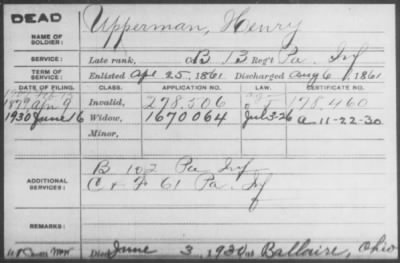 DEAD
NAME OF SOLDIER: Upperman, Henry
SERVICE: Late rank, Co B 13 Reg't Pa. Inf
TERM OF SERVICE: Enlisted Apr 25, 1861 Discharged Aug 6, 1861
DATE OF FILING. CLASS. APPLICATION NO. LAW. CERTIFICATE NO.
1879 Apr 9 Invalid, 278.506 178.460
1930 June 16 Widow, 1670064 Jul 3-26 a 11-22-30
Minor,
ADDITIONAL SERVICES: B 102 Pa Inf
C & F 61 Pa. Inf
REMARKS:
Died June 3, 1930 at Bellaire, Ohio